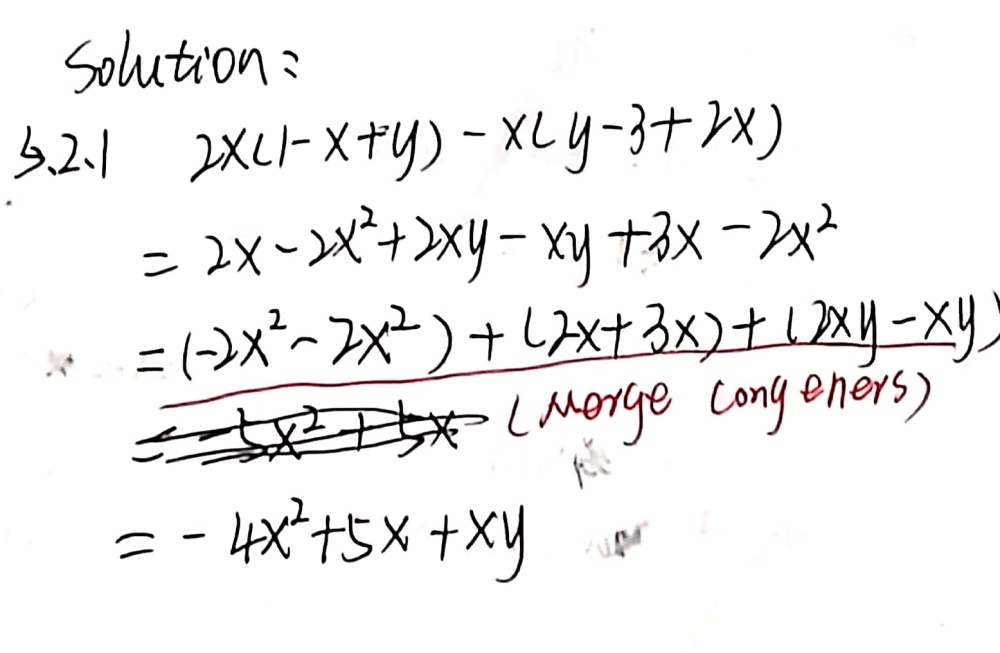 Solution:
5.2.1 2x(1-x+y)-x(y-3+2x)
=2x-2x²+2xy-xy+3x-2x²
=(-2x²-2x²)+(2x+3x)+(2xy-xy)
(Merge congeners)
=-4x²+5x+xy